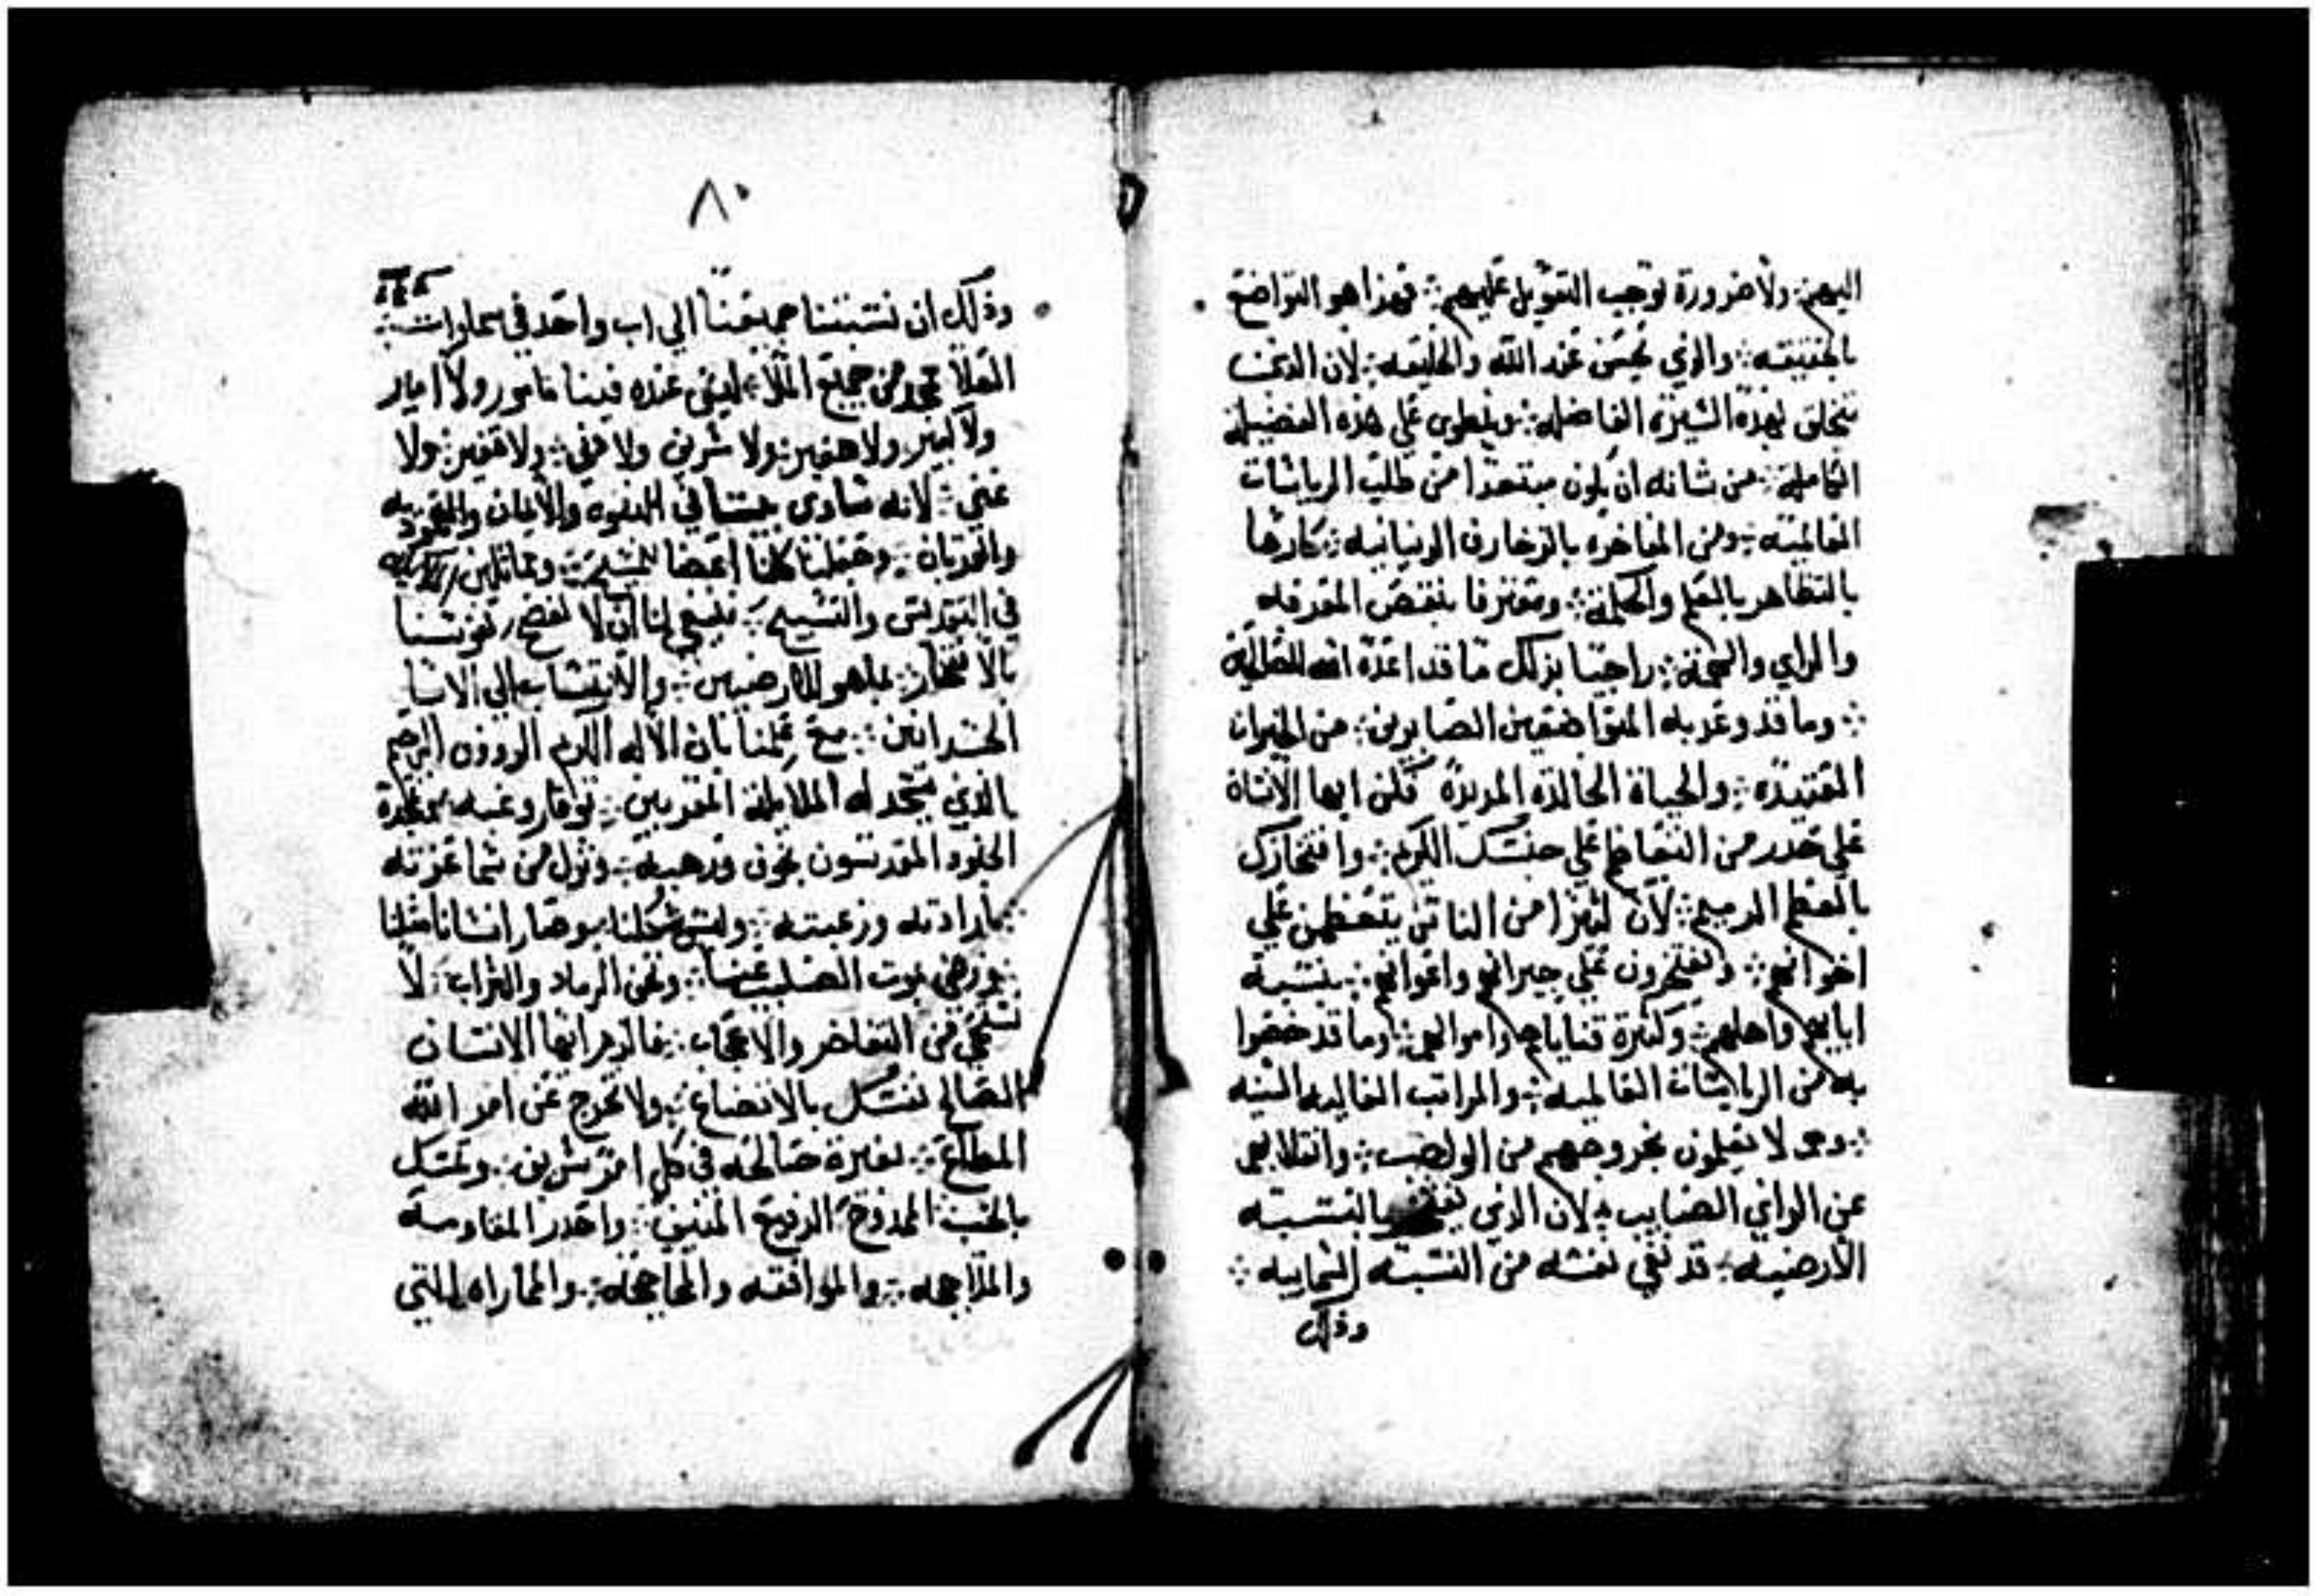 اليهم ∴ ولا ضرورة توجب التعويل عليهم ∴ فهذا هو التواضع
بالحقيقه ∴ والذي يحسن عند الله والخليقه ∴ لان الذي
يتخلق بهذه السيره الفاضله ∴ وينطوي علي هذه الفضيله
الكامله ∴ من شانه ان يكون مبتعدا من طلب الرياسات
العالميه ∴ ومن المفاخره بالزخارف الدنيانيه ∴ كارها
بالتظاهر بالعلم والحكمة ∴ ومعترفا بنقص المعرفه
والراي ∴ راجيا بذلك ما قد اعده الله
∴ وما قد وعد به المتواضعين الصابرين ∴ من الخيرات
العتيده ∴ والحياة الخالده المديدة فكن ايها الانسان
علي حدر من التعاظم علي جنسك الكريم ∴ وافتخارك
بالعظم الرميم ∴ لان كثيرا من الناس يتعظمن علي
اخوانهم ∴ ويفتخرون علي جيرانهم واعوانهم ∴ بنسبة
ابايهم واهلهم ∴ وكثرة قناياهم واموالهم ∴ وما قد خصوا
به من الرياسات العالميه ∴ والمراتب العاليه السنيه
∴ وهم لا يعلمون بخروجهم من الواجب ∴ وانقلابهم
عن الراي الصايب ∴ لان الذي يفتخر بالنسبه
الارضيه ∴ قد نفي نفسه من النسبه السماييه ∴
وذلك
٨٠
وذلك ان نسبتنا جميعنا الي اب واحد في سماوات ∴
العلا ممجد من جميع الملا ∴ ليس عنده فينا مامور ولا امير
ولا كبير ولا حقير ∴ ولا شريف ولا دني ∴ ولا فقير ∴ ولا
غني ∴ لانه ساوي بيننا في البنوه والايمان والمعموديه
والقربان ∴ وجعلنا كلنا اعضا للمسيح ∴ ومماثلين
في التقديس والتسبيح ∴ فينبغي لنا ان لا نفضح نفوسنا
بالافتخار ∴ بما هو للارضيين ∴ والانتساب الي الابا
الجسدانيين ∴ مع علمنا بان الاله الكريم الرووف الرحيم
الذي تسجد له الملايكة المقربين ∴ بوقار وغبه ∴ وتمجده
الجنود المقدسون بخوف ورهبه ∴ ونزل من سما عزته
∴ بارادته ورغبته ∴ ولبس شكلنا ∴ وصار انسانا مثلنا
∴ ورضي بموت الصليب عنا ∴ ونحن الرماد والتراب ∴ لا
نستحي من التفاخر والاعجاب ∴ فالزم ايها الانسان
الصالح تمسك بالاتضاع ∴ ولا تخرج عن امر الله
المطاع ∴ بغيرة صالحه في كل امر شريف ∴ وتمسك
بالحب الممدوح الرفيع المنيف ∴ واحدر المقاومه
والملاججه ∴ والمرافقه والمحاججه ∴ والمماراه التي